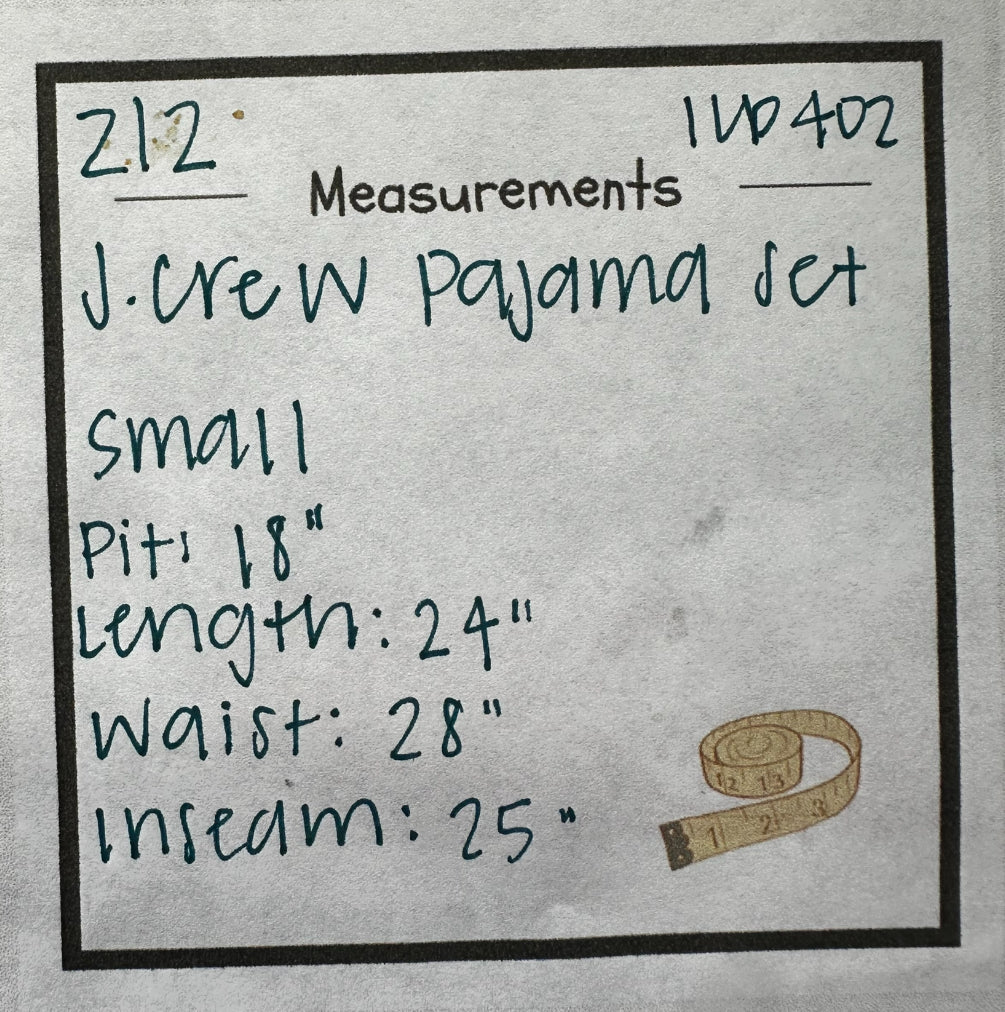 212 1UP402
Measurements
J.Crew pajama set
small
Pit: 18"
Length: 24"
Waist: 28"
Inseam: 25"
12 13
1 2 3